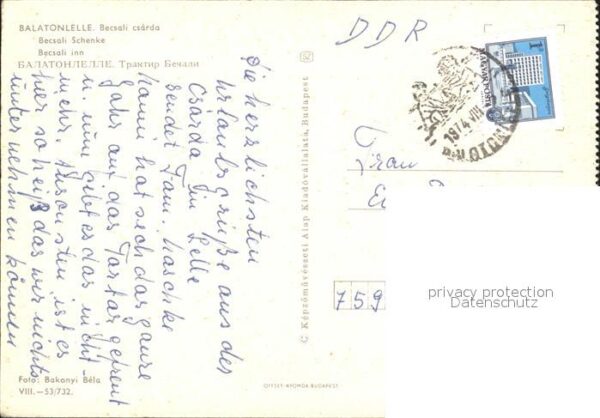 BALATONLELLE. Becsali csárda
Becsali Schenke
Becsali inn
БАЛАТОНЛЕЛЛЕ. Трактир Бечали
Die herzlichsten
Urlaubsgrüße aus der
Csárda in Lelle
sendet Fam. Haschke
Hanni hat sich das ganze
Jahr auf das Tartar gefreut
u. nun gibt es das nicht
mehr. Ansonsten ist es
hier so heiß das wir nichts
unternehmen können
Foto: Bakonyi Béla
VIII.—53/732.
C Képzőművészeti Alap Kiadóvállalata, Budapest
OFFSET-NYOMDA BUDAPEST
DDR
1Ft
MAGYAR POSTA
1974 VIII
Frau
759
privacy protection
Datenschutz